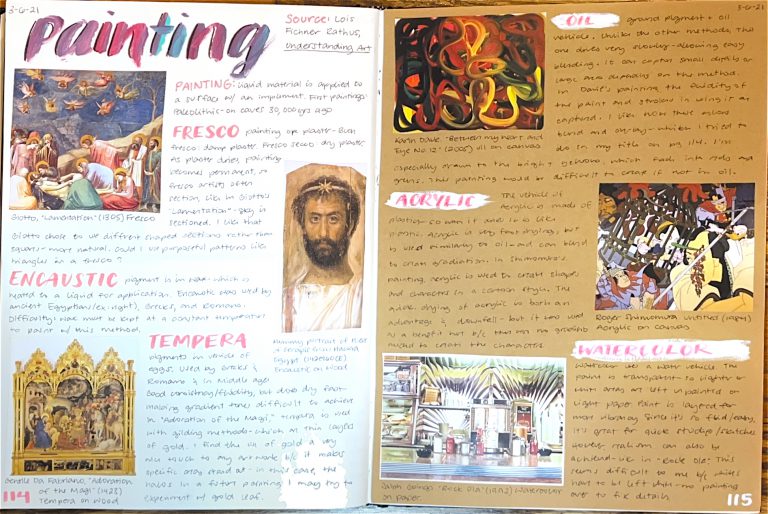 3-6-21
Painting
Source: Lois
Fichner Rathus,
Understanding Art
PAINTING: liquid material is applied to
a surface w/ an implement. First paintings:
Paleolithic - on caves 30,000 yrs ago
FRESCO painting on plaster - Buon
fresco: damp plaster. Fresco secco dry plaster.
As plaster dries, painting
becomes permanent, so
fresco artists often
section, like in Giotto's
"Lamentation" - sky is
sectioned. I like that
Giotto, "Lamentation" (1305) Fresco
Giotto chose to use different shaped sections rather than
squares - more natural. Could I use purposeful patterns like
triangles in a fresco?
ENCAUSTIC pigment is in wax which is
heated to a liquid for application. Encaustic was used by
ancient Egyptian (ex: right), Greeks, and Romans.
Difficulty: wax must be kept at a constant temperature
to paint w/ this method.
Mummy portrait of Priest
of Serapis from Hawara,
Egypt
Encaustic on Wood
TEMPERA
pigments in vehicle of
eggs. Used by Greeks &
Romans & in Middle ages
Good consistency/fluidity, but does dry fast
making gradient tones difficult to achieve
In "Adoration of the Magi," tempera is used
with gilding methods - which are thin layers
of gold. I find the use of gold a very
nice touch to any art work b/c it makes
specific areas stand out - in this case, the
halos. In a future painting I may try to
experiment w/ gold leaf.
Gentile Da Fabriano, "Adoration
of the Magi" (1423)
Tempera on Wood
114
3-6-21
OIL ground pigment + oil
vehicle. Unlike the other methods, this
one dries very slowly - allowing easy
blending. It can capture small details or
large areas depending on the method.
In Davie's painting the fluidity of
the paint and strokes in using it are
captured. I like how these colors
blend and overlap - which I tried to
do in my title on pg 114. I'm
Karin Davie "Between my Heart and
Eye No. 12" (2005) Oil on canvas
especially drawn to the bright yellows, which fade into reds and
greens. This painting would be difficult to create if not in oil.
ACRYLIC The vehicle of
Acrylic is made of
plastic so when it dries it is like
plastic. Acrylic is very fast drying, but
is used similarly to oil - and can blend
to create gradation. In Shimomura's
painting, acrylic is used to create shapes
and characters in a cartoon style. The
quick drying of acrylic is both an
advantage & downfall - but it was used
as a benefit here b/c there was no gradient
needed to create the characters.
Roger Shimomura Untitled (1984)
Acrylic on Canvas
WATERCOLOR
Watercolor uses a water vehicle. The
paint is transparent so lighter &
white areas are left unpainted or
light paper. Paint is layered for
more vibrancy. Since it's so fluid/easy,
it's great for quick studies/sketches
however realism can also be
achieved - like in "Rock Ola." This
seems difficult to me b/c whites
have to be left white - no painting
over to fix details.
Ralph Goings "Rock Ola" (1992) Watercolor
on paper.
115